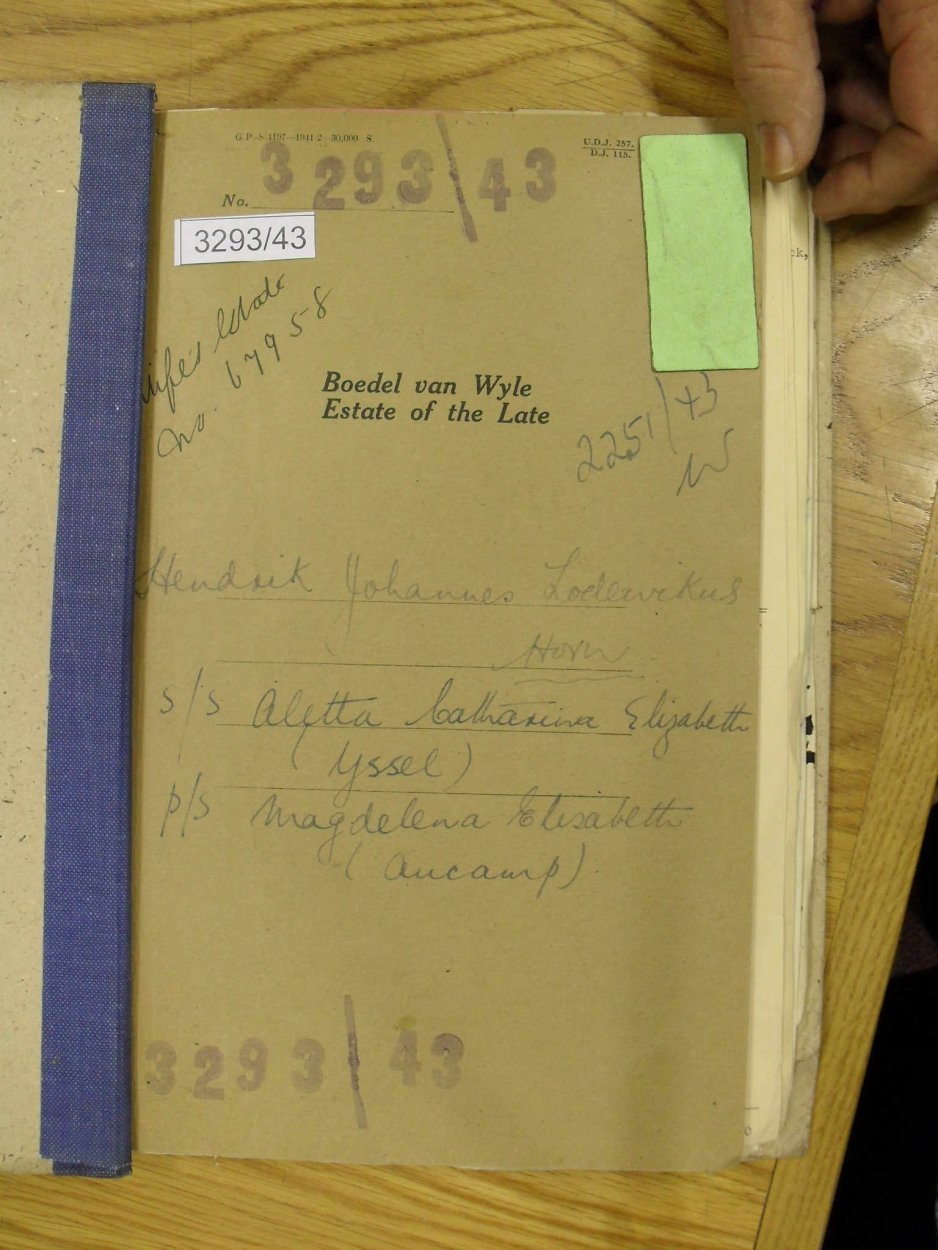 G.P.-S.4197—1941-2—30,000 S.
U.D.J. 257.
D.J. 115.
No. 3293/43
3293/43
Wife's Estate
No. 67958
Boedel van Wyle
Estate of the Late
2251/43
Hendrik Johannes Lodewikus
Horn
s/s Aletta Catharina Elizabeth
(Yssel)
p/s Magdelena Elisabeth
(Aucamp).
3293/43